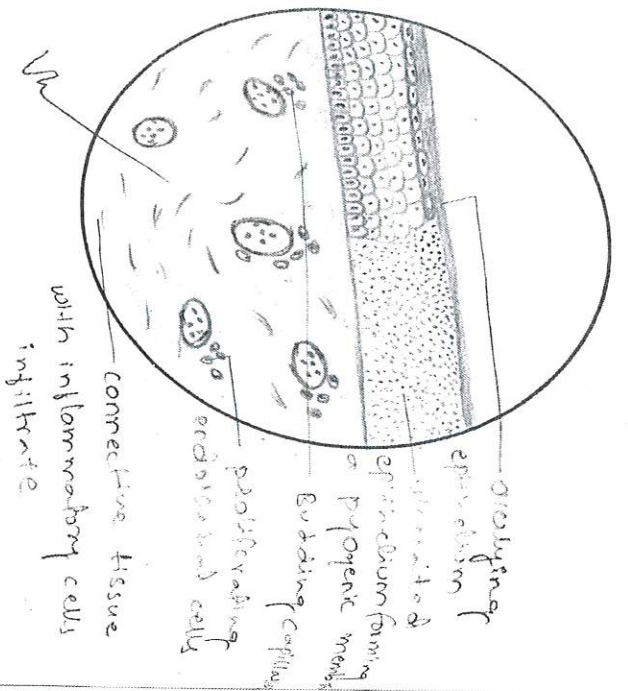 overlying
epithelium
epithelium forming
a pyogenic memb
Budding capillar
proliferating
endothelial cells
connective tissue
with inflammatory cells
infiltrate